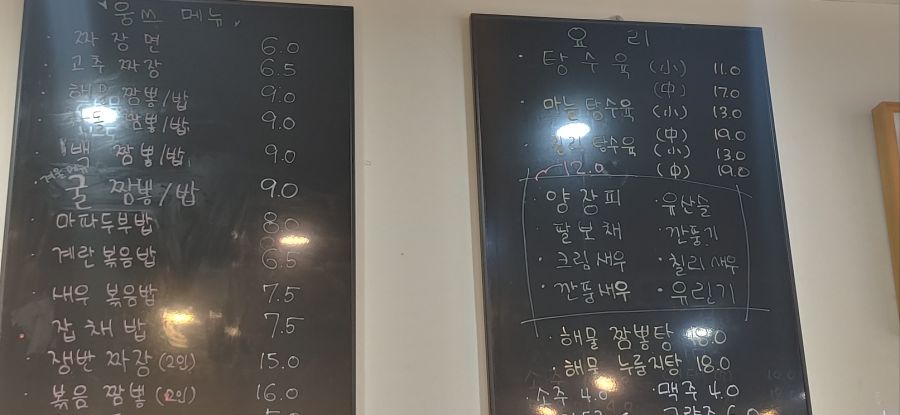 웅쓰 메뉴
· 짜장면 6.0
· 고추 짜장 6.5
· 해물 짬뽕/밥 9.0
짬뽕/밥 9.0
· 백 짬뽕/밥 9.0
· 굴 짬뽕/밥 9.0
· 마파두부밥 8.0
· 계란볶음밥 6.5
· 새우 볶음밥 7.5
· 잡채밥 7.5
· 쟁반 짜장 (2인) 15.0
· 볶음 짬뽕 (2인) 16.0
요 리
· 탕수육 (小) 11.0
(中) 17.0
· 마늘 탕수육 (小) 13.0
(中) 19.0
· 칠리 탕수육 (小) 13.0
(中) 19.0
12.0
· 양장피 · 유산슬
· 팔보채 · 깐풍기
· 크림새우 · 칠리새우
· 깐풍새우 · 유린기
· 해물 짬뽕탕 18.0
· 해물 누룽지탕 18.0
· 소주 4.0 · 맥주 4.0